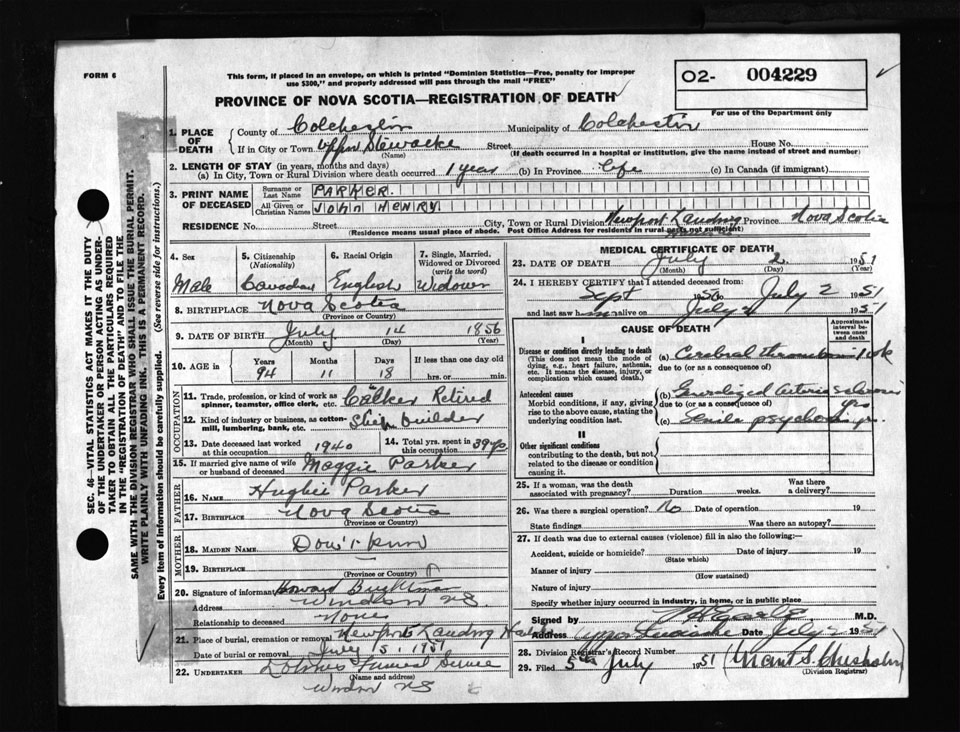 FORM 6
This form, if placed in an envelope, on which is printed "Dominion Statistics—Free, penalty for improper
use $300," and properly addressed will pass through the mail "FREE"
O2- 004229
For use of the Department only
PROVINCE OF NOVA SCOTIA—REGISTRATION OF DEATH
1. PLACE OF DEATH { County of Colchester Municipality of Colchester
If in City or Town Upper Stewiacke Street House No.
(Name) (If death occurred in a hospital or institution, give the name instead of street and number)
2. LENGTH OF STAY (in years, months and days)
(a) In City, Town or Rural Division where death occurred 1 year (b) In Province life (c) In Canada (if immigrant)
3. PRINT NAME OF DECEASED { Surname or Last Name PARKER.
All Given or Christian Names JOHN HENRY.
RESIDENCE No. Street City, Town or Rural Division Newport Landing Province Nova Scotia
(Residence means usual place of abode. Post Office Address for residents in rural parts not sufficient)
4. Sex Male
5. Citizenship (Nationality) Canadian
6. Racial Origin English
7. Single, Married, Widowed or Divorced (write the word) Widower
8. BIRTHPLACE Nova Scotia
(Province or Country)
9. DATE OF BIRTH July 14 1856
(Month) (Day) (Year)
10. AGE in { Years 94 Months 11 Days 18 If less than one day old
hrs. or min.
OCCUPATION
11. Trade, profession, or kind of work as spinner, teamster, office clerk, etc. Retired
12. Kind of industry or business, as cotton-mill, lumbering, bank, etc. Ship builder
13. Date deceased last worked at this occupation 1940
14. Total yrs. spent in this occupation 39 yrs
15. If married give name of wife or husband of deceased Maggie Parker
FATHER
16. NAME Hughie Parker
17. BIRTHPLACE Nova Scotia
(Province or Country)
MOTHER
18. MAIDEN NAME Don't know
19. BIRTHPLACE
(Province or Country)
20. Signature of informant Howard
Address Windsor NS.
Relationship to deceased None
21. Place of burial, cremation or removal Newport Landing
Date of burial or removal July 5, 1951
22. UNDERTAKER Funeral Service
(Name and address)
Windsor NS
MEDICAL CERTIFICATE OF DEATH
23. DATE OF DEATH July 2 1951
(Month) (Day) (Year)
24. I HEREBY CERTIFY that I attended deceased from:
Sept 1950 to July 2 1951
and last saw alive on July 2 1951
CAUSE OF DEATH
Approximate interval between onset and death
I
Disease or condition directly leading to death
(This does not mean the mode of dying, e.g., heart failure, asthenia, etc. It means the disease, injury, or complication which caused death.)
(a) Cerebral thrombosis 1 wk
due to (or as a consequence of)
Antecedent causes
Morbid conditions, if any, giving rise to the above cause, stating the underlying condition last.
(b) Generalized arterio sclerosis yrs
due to (or as a consequence of)
(c) Senile psychosis yrs.
II
Other significant conditions
contributing to the death, but not related to the disease or condition causing it.
25. If a woman, was the death associated with pregnancy? Duration weeks. Was there a delivery?
26. Was there a surgical operation? No Date of operation 19
State findings Was there an autopsy?
27. If death was due to external causes (violence) fill in also the following:-
Accident, suicide or homicide? Date of injury 19
(State which)
Manner of injury
(How sustained)
Nature of injury
Specify whether injury occurred in industry, in home, or in public place
Signed by M.D.
Address Upper Stewiacke Date July 2 1951
28. Division Registrar's Record Number
29. Filed 5th July 1951 Grant S. Chisholm
(Division Registrar)
SEC. 46—VITAL STATISTICS ACT MAKES IT THE DUTY
OF THE UNDERTAKER OR PERSON ACTING AS UNDER-
TAKER TO OBTAIN ALL THE PARTICULARS REQUIRED
IN THE "REGISTRATION OF DEATH" AND TO FILE THE
SAME WITH THE DIVISION REGISTRAR WHO SHALL ISSUE THE BURIAL PERMIT.
WRITE PLAINLY WITH UNFADING INK. THIS IS A PERMANENT RECORD.
Every item of information should be carefully supplied. (See reverse side for instructions.)